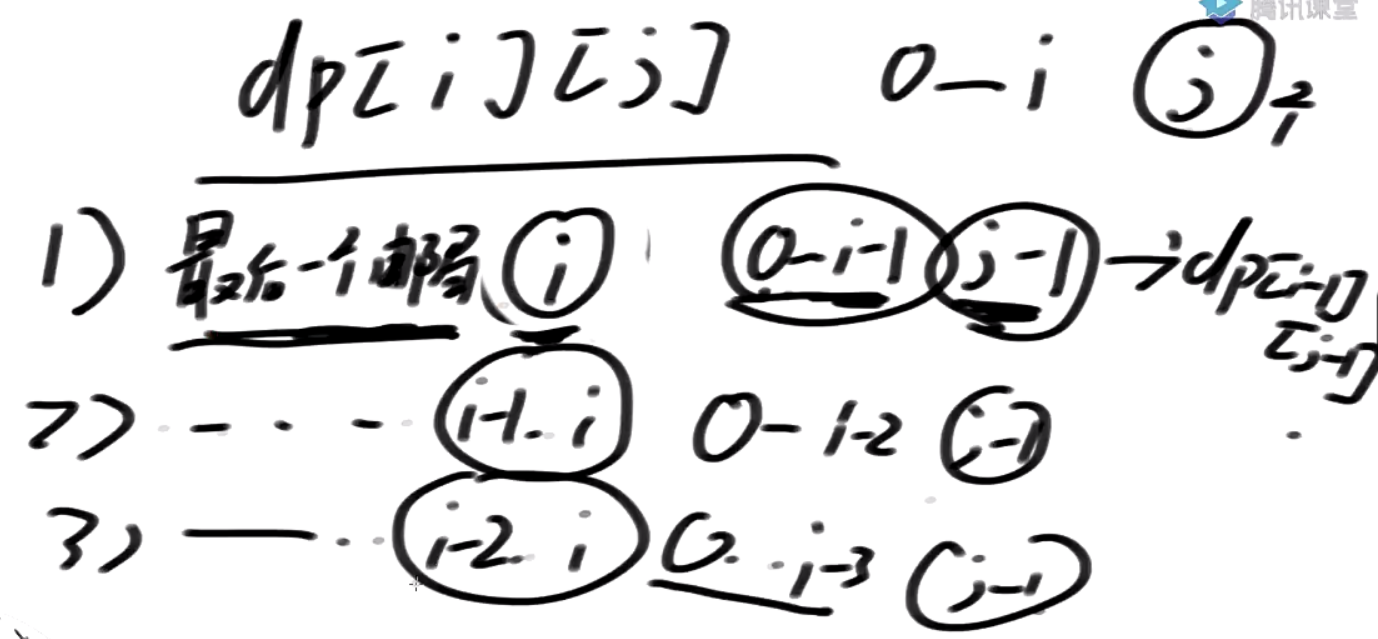 腾讯课堂
dp[i][j] 0—i j
1) 最后一个邮局 i 0-i-1 j-1 → dp[i-1]
[j-1]
2) - · - i-1.. i 0-i-2 j-1
3) — .. i-2.. i 0..i-3 j-1